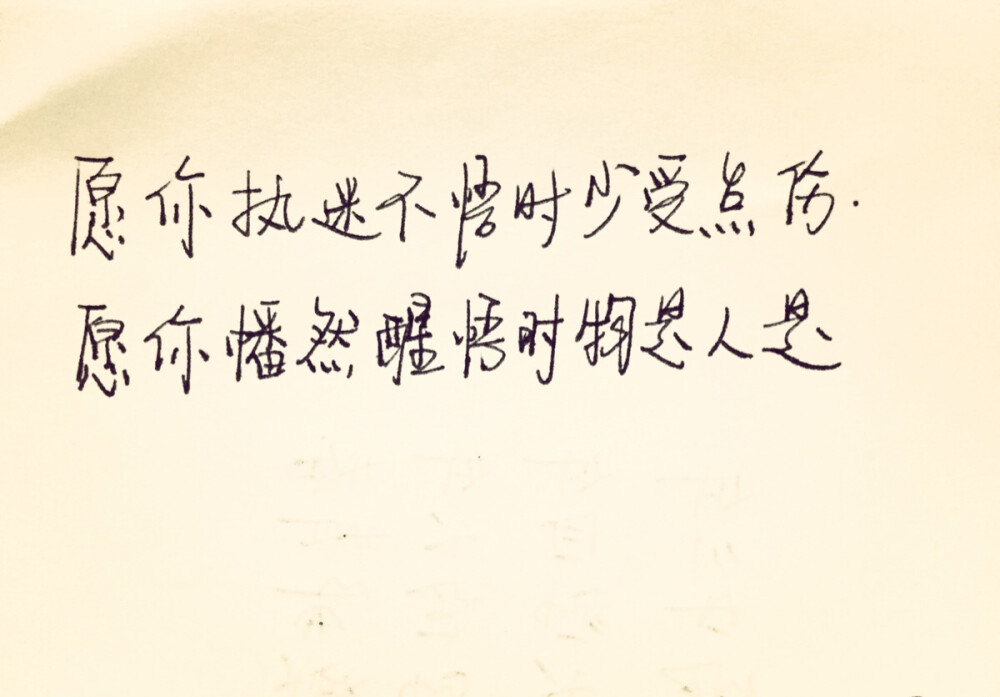 愿你执迷不悟时少受点伤.
愿你幡然醒悟时物是人是